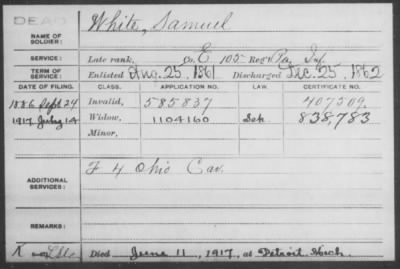 DEAD
White, Samuel
NAME OF SOLDIER:
SERVICE: Late rank, Co. E 105 Reg't Pa. Inf.
TERM OF SERVICE: Enlisted Aug. 25, 1861 Discharged Dec. 25, 1862
DATE OF FILING. CLASS. APPLICATION NO. LAW. CERTIFICATE NO.
1886 Sept 24 Invalid, 585837 407509.
1917 July 14 Widow, 1104160 838,783
Minor,
F 4 Ohio Cav.
ADDITIONAL SERVICES:
REMARKS:
Died June 11, 1917, at Detroit Mich.